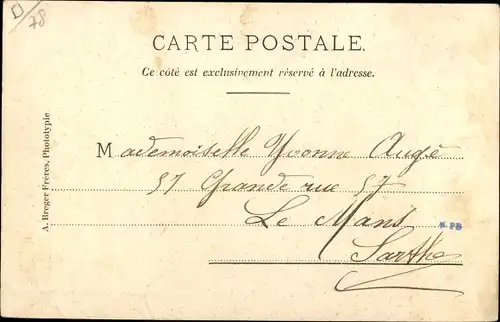 D
78
CARTE POSTALE.
Ce côté est exclusivement réservé à l'adresse.
Mademoiselle Yvonne Augé
57 Grande rue 57
Le Mans
Sarthe
* PB
A. Breger Frères, Phototypie